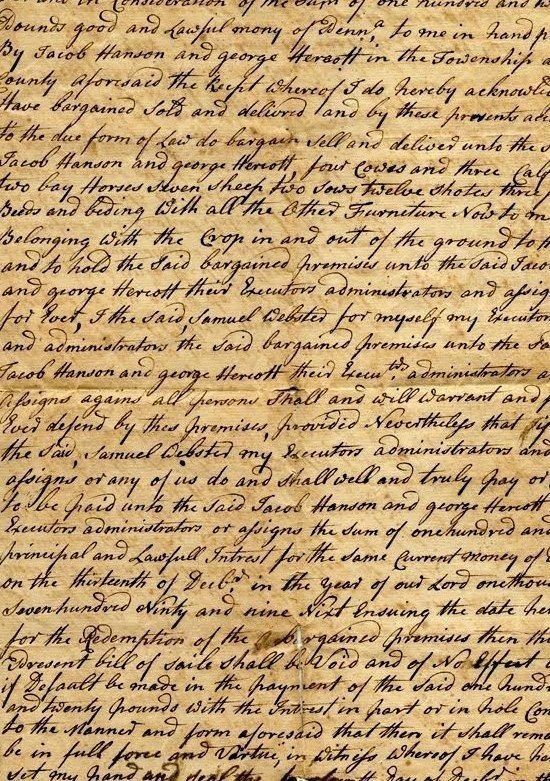 for and in Consideration of the Sum of one hundred and
Pounds good and Lawful mony of Penna. to me in hand p
By Jacob Hanson and george Hercott in the Township a
County aforesaid the Rcept whereof I do hereby acknowled
Have bargained Sold and deliverd and by these presents
to the due form of Law do bargain Sell and deliver unto the s
Jacob Hanson and george Hercott, four Cowes and three Cal
two bay Horses Seven Sheep two Sows twelve Shotes three
Beeds and beding With all the Other Furneture Now to m
Belonging with the Crop in and out of the ground to h
and to hold the Said bargained premises unto the Said Jaco
and george Hercott their Executors administrators and assig
for Ever, I the Said, Samuel Webster for myself my Executor
and administrators the Said bargained premises unto the Sa
Jacob Hanson and george Hercott their Executrs. administrators a
Assigns agains all persons Shall and will warrant and f
Ever defend by thes premises, provided Nevertheless that if
the Said, Samuel Webster my Executors administrators and
assigns or any of us do and Shall well and truly pay or
to be paid unto the Said Jacob Hanson and george Hercott
Executors administrators or assigns the Sum of onehundred and
principal and Lawfull Intrest for the Same Current money of
on the thirteenth of Decbr. in the year of our Lord onethou
Sevenhundred Ninty and nine Nixt Ensuing the date her
for the Redemption of the bargained premises then th
present bill of Saile Shall be Void and of No Effect
if Default be made in the payment of the Said one hund
and twenty pounds with the Intrest in part or in hole Con
to the Manner and form aforesaid that then it Shall rema
be in full force and Virtue in Witness whereof I have ha
Set my hand and Seal the